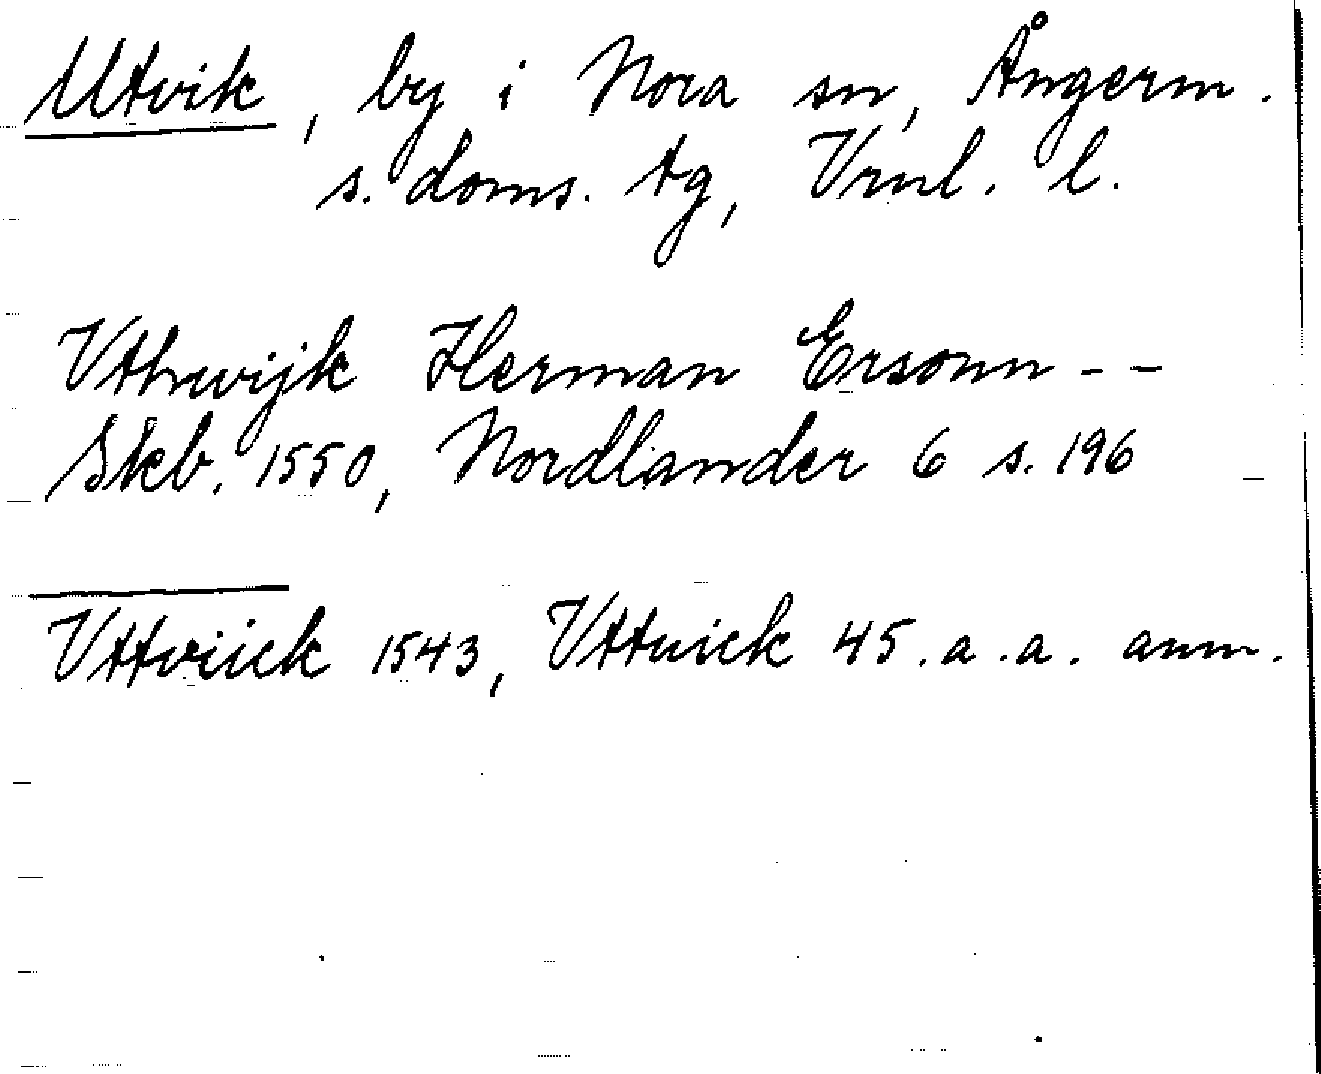 Utvik, by i Nora sn, Ångerm.
s. doms. tg, Vrnl. l.
Vthwijk Herman Ersonn - -
Skb. 1550, Nordlander 6 s. 196
Vttviick 1543, Vttuick 45. a. a. anm.